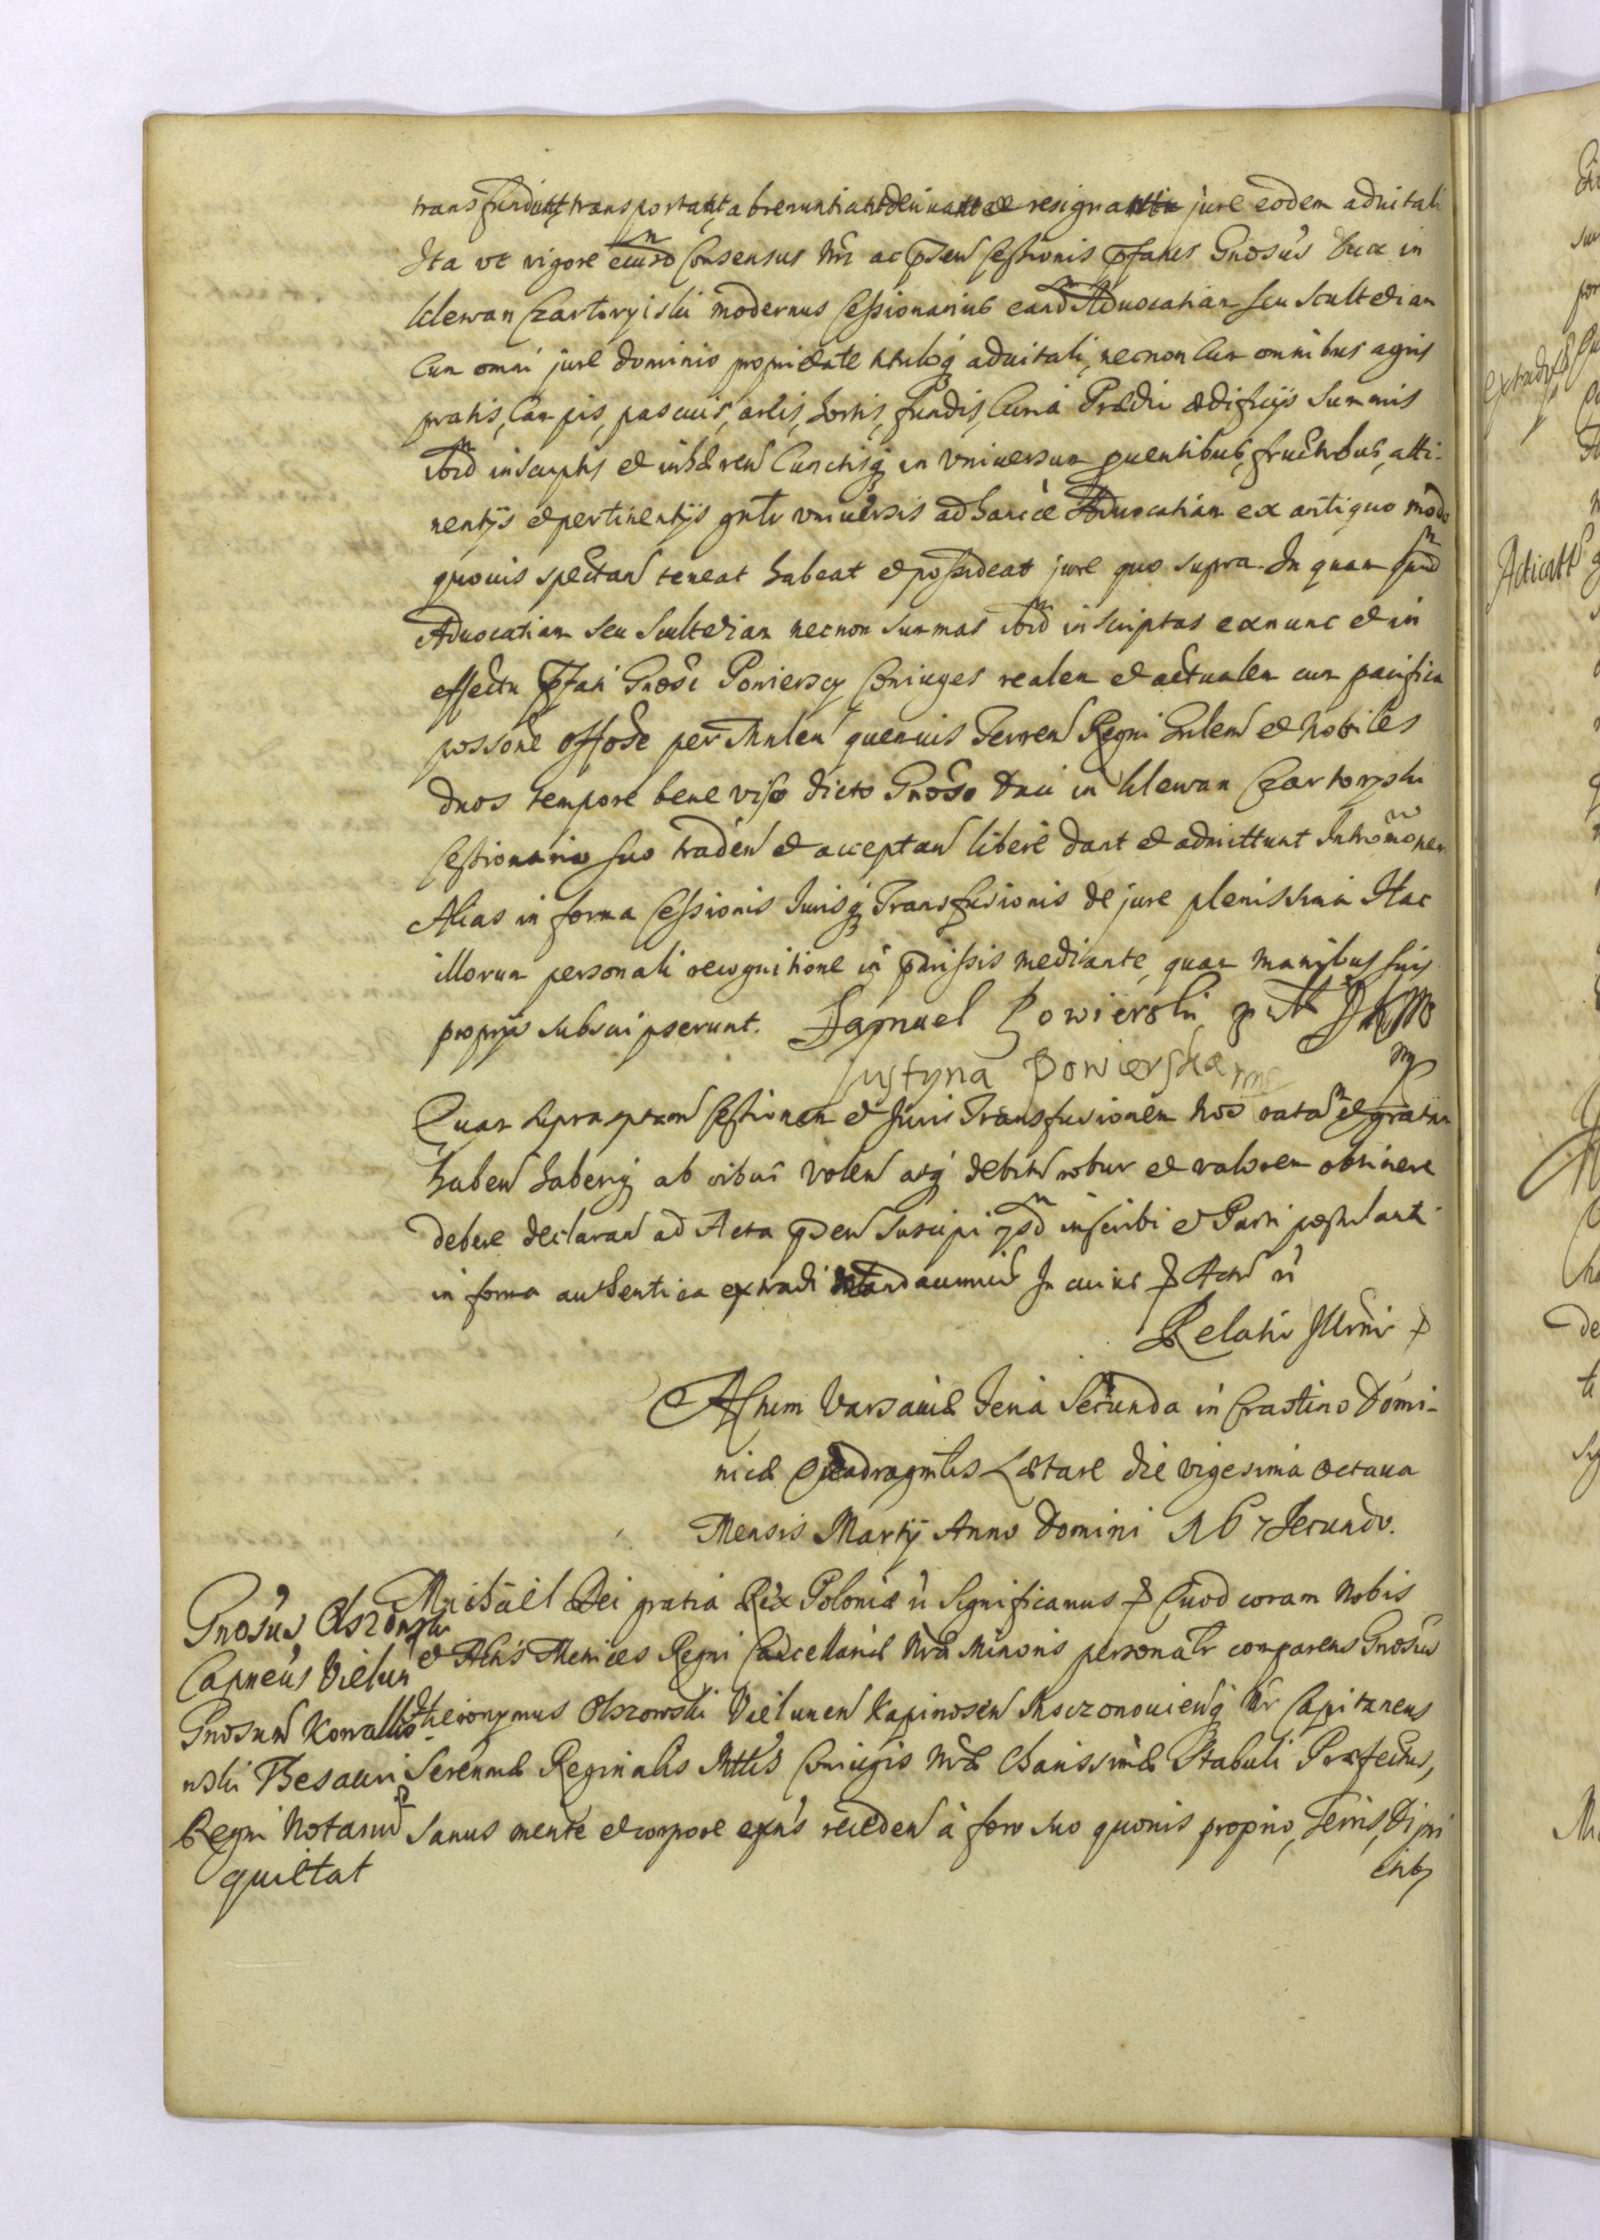 transfundunt transportant abrenuntiant derivant et resignant jure eodem aduitali
Ita ut vigore eiusd Consensus Nri ac pnsen Cessionis pfatus Gnosus Dux in
Klewan Czartoryiski modernus Cessionarius eand Aduocatiam seu Scultetiam
Cum omni jure dominio proprietate tituloq aduitali, necnon Cum omnibus agris
pratis, Campis, pascuis, areis, hortis, fundis, Curia Prædii ædificijs Summis
ibid inscriptis et inhæren Cunctisq in vniuersum prouentibus, fructibus, atti-
nentijs et pertinentijs gnlr vniuersis ad hancce Aduocatiam ex antiquo modo
quouis spectan teneat habeat et possideat jure quo supra. In quam quid
Aduocatiam seu Scultetiam necnon summas ibid inscriptas ex nunc et in
effectu pfati Gnosi Powierscy Coniuges realem et actualem cum pacifica
possone per Mnlem quemuis Terren Regni Gnlem et Nobiles
duos tempore bene viso dicto Gnoso Duci in Klewan Czartoryski
Cessionario suo traden et acceptan libere dant et admittunt Intromonem
Alias in forma Cessionis Jurisq Transfusionis de jure plenissima Hac
illorum personali recognitione in pmissis mediante, quam manibus suis
proprijs subscripserunt. Samuel Powierski
Justyna Powierska mp
Quam supra sptam Cessionem et Juris Transfusionem Nos ratam et gratam
haben haberiq ab oibus volen atq debitu robur et valorem obtinere
debere declaran ad Acta pnsen suscipi ijsd inscribi et Parti postulanti
in forma authentica extradi mandauimus In cuius p Actu ut
Relatio Illrmi p
Actum Varsauiæ Feria Secunda in Crastino Domi-
nicæ Quadragmlis Lætare die vigesima octaua
Mensis Martij Anno Domini 167 Secundo.
Gnosus Olszowski
Capneus Vielun
Gnosum Kowalko-
wski Thesauri
Regni Notarium
quietat
Michael Dei gratia Rex Poloniæ ut Significamus p Quod coram Nobis
et Actis Metrices Regni Cancellariæ Nræ Minoris personalr comparens Gnosus
Hieronymus Olszowski Vielunen Kapinosen Moczonouienq Nr Capitaneus
Serenmæ Reginalis Mttis Coniugis Nræ Charissimæ Stabuli Præfectus,
Sanus mente et corpore expns receden à foro suo quouis proprio, Terris, Dipri
ctibq